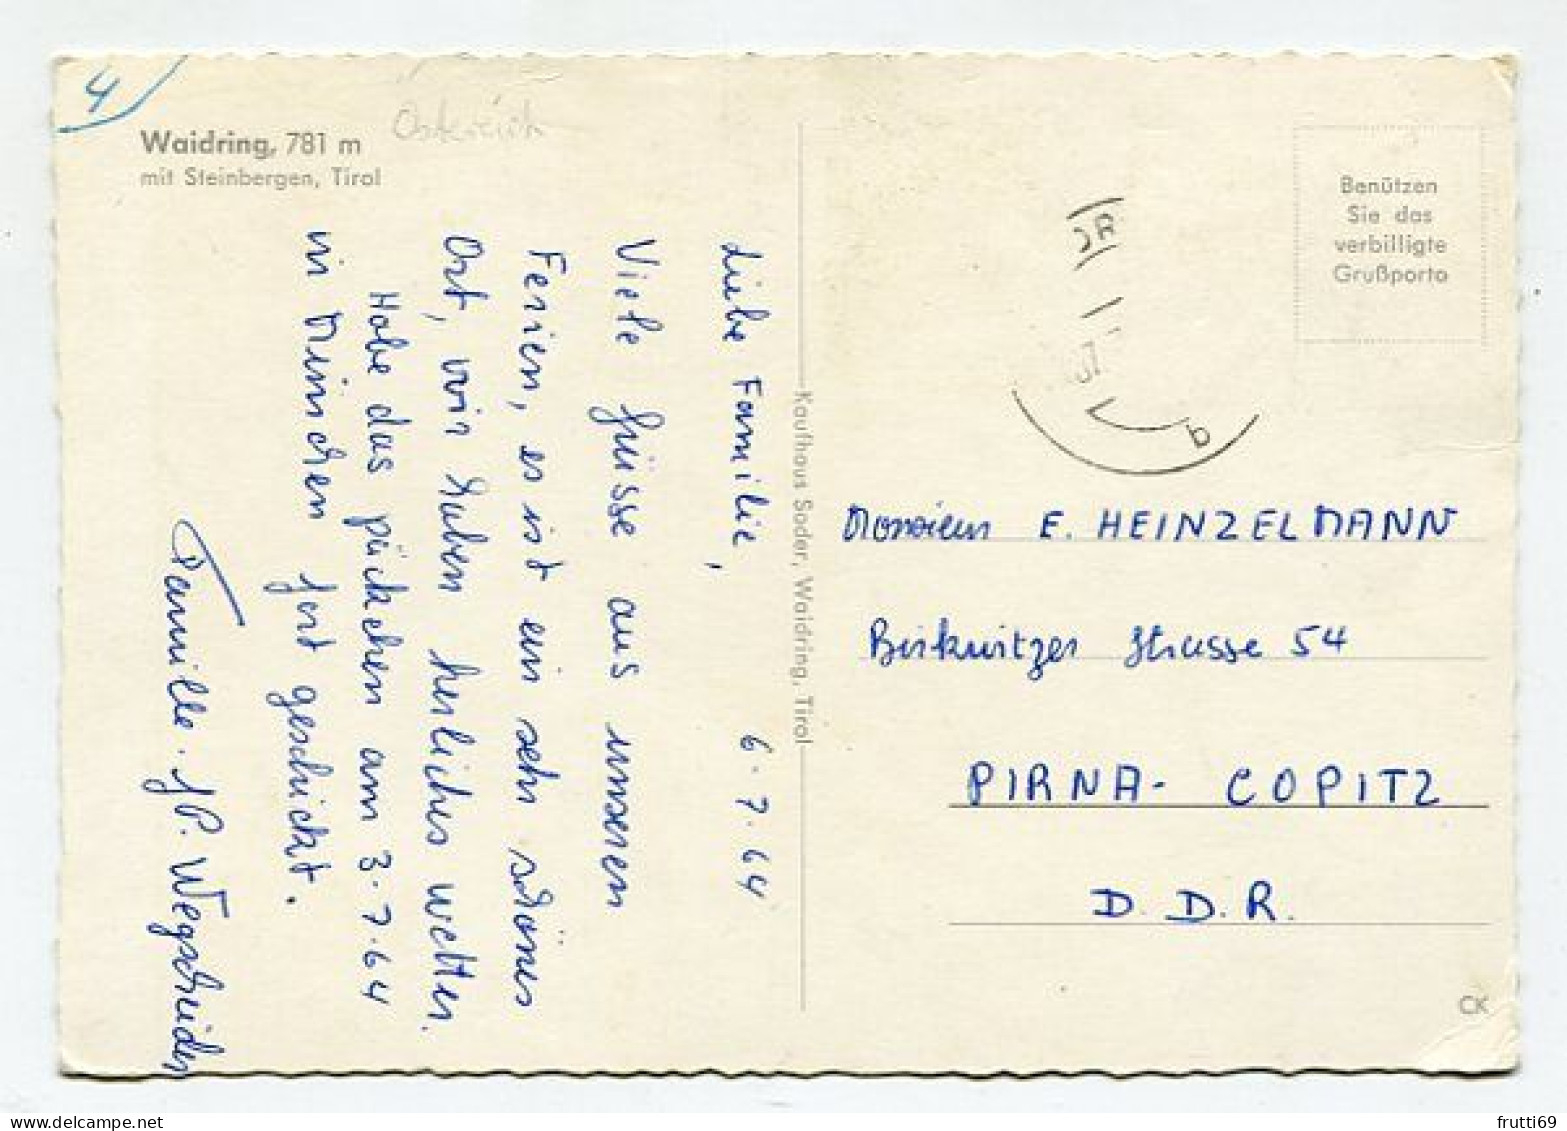 4
Österreich
Waidring, 781 m
mit Steinbergen, Tirol
Liebe Familie,
6.7.64
Viele Grüsse aus unseren
Ferien, es ist ein sehr schönes
Ort, wir haben herliches wetter.
Habe das päckchen am 3.7.64
in München fort geschickt.
Famille. JP. Wegscheider
Kaufhaus Soder, Waidring, Tirol
Benützen
Sie das
verbilligte
Grußporto
b
Monsieur E. HEINZELMANN
Birkwitzer Strasse 54
PIRNA- COPITZ
D. D. R.
CK
frutti69